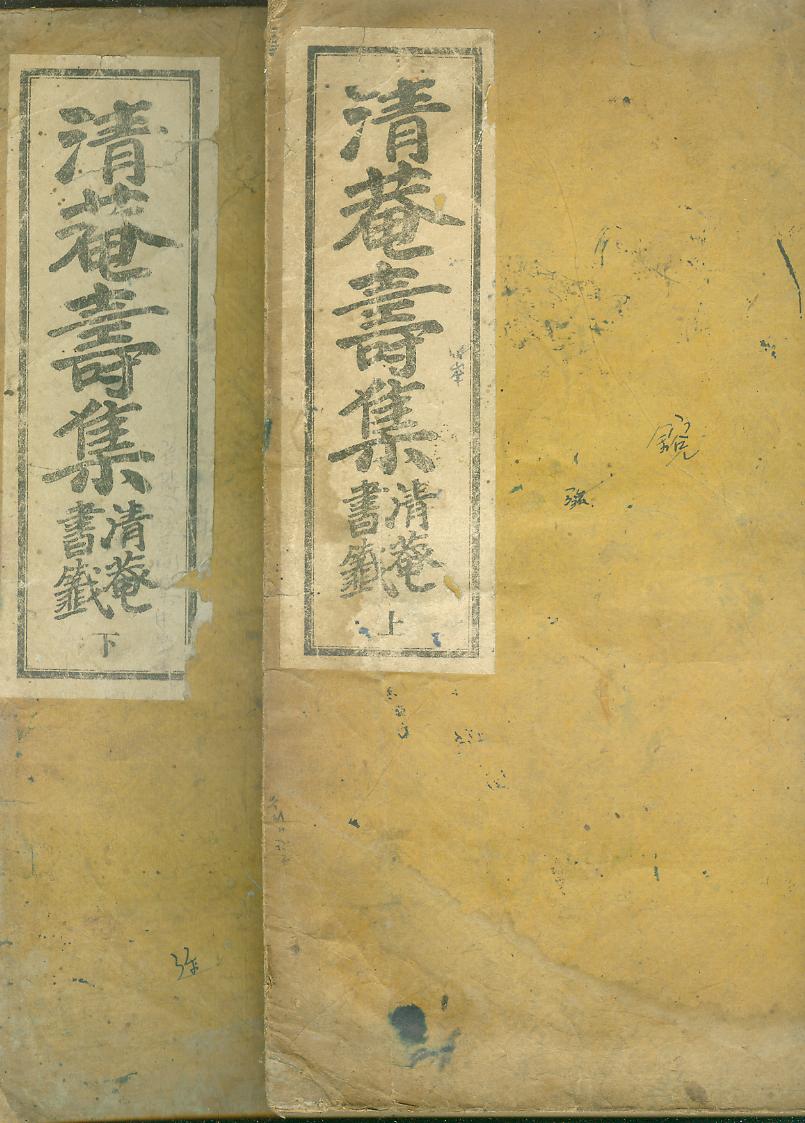 清菴壽集
清菴
書籤
上
清菴壽集
清菴
書籤
下